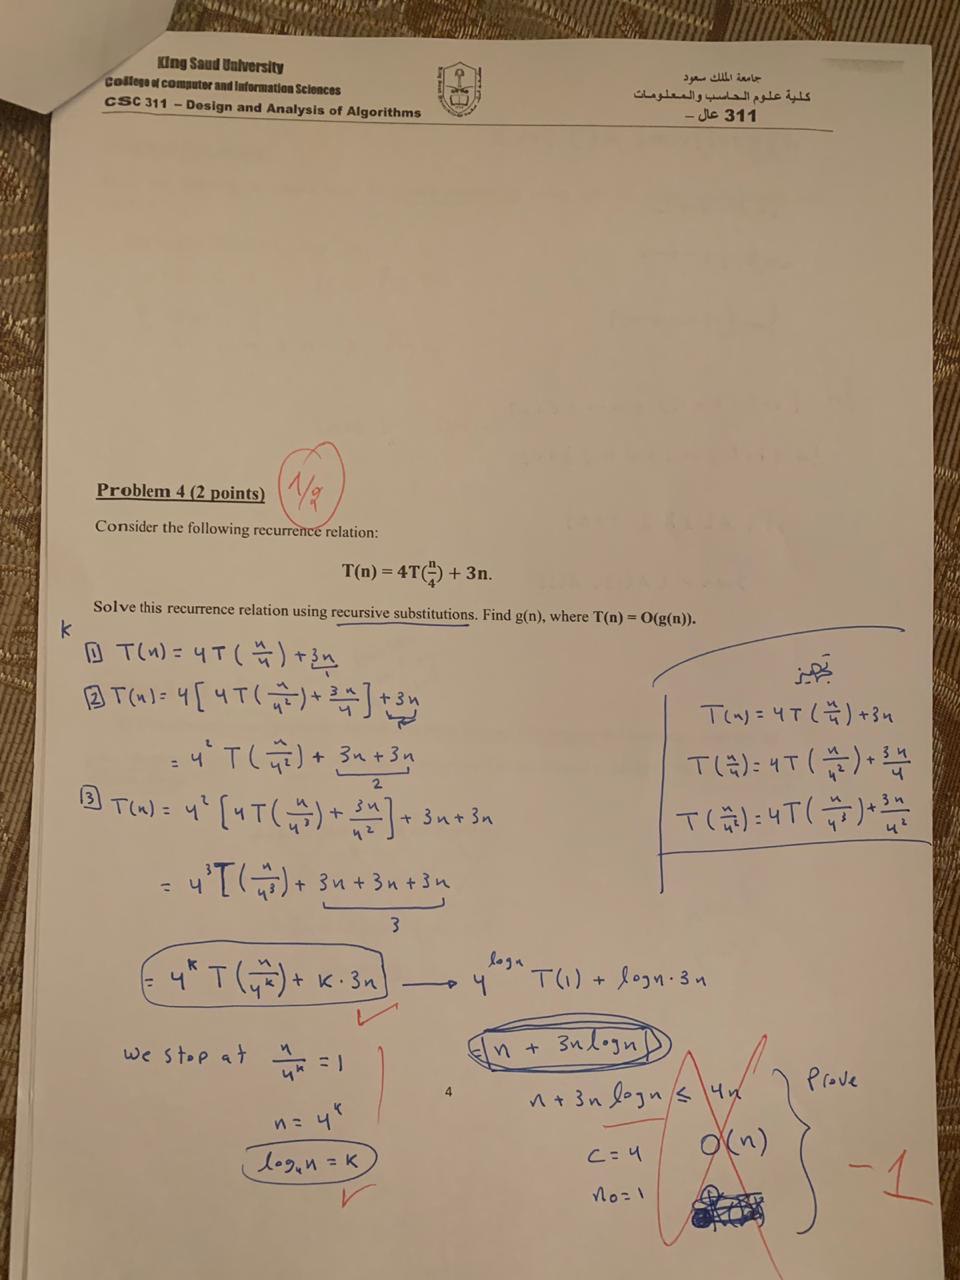 King Saud University
College of computer and Information Sciences
CSC 311 – Design and Analysis of Algorithms
جامعة الملك سعود
كلية علوم الحاسب والمعلومات
311 عال –
Problem 4 (2 points)
1/2
Consider the following recurrence relation:
T(n) = 4T(n/4) + 3n.
Solve this recurrence relation using recursive substitutions. Find g(n), where T(n) = O(g(n)).
K
1 T(n) = 4T(n/4) + 3n
1
2 T(n) = 4[4T(n/4²) + 3n/4] + 3n
= 4² T(n/4²) + 3n + 3n
2
3 T(n) = 4² [4T(n/4³) + 3n/4²] + 3n + 3n
= 4³ T(n/4³) + 3n + 3n + 3n
3
= 4^K T(n/4^K) + K · 3n → 4^logn T(1) + logn · 3n
تجهيز
T(n) = 4T(n/4) + 3n
T(n/4) = 4T(n/4²) + 3n/4
T(n/4²) = 4T(n/4³) + 3n/4²
We stop at n/4^K = 1
n = 4^K
log₄n = K
= n + 3n logn
n + 3n logn ≤ 4n
C = 4
n₀ = 1
O(n)
Prove
-1
4